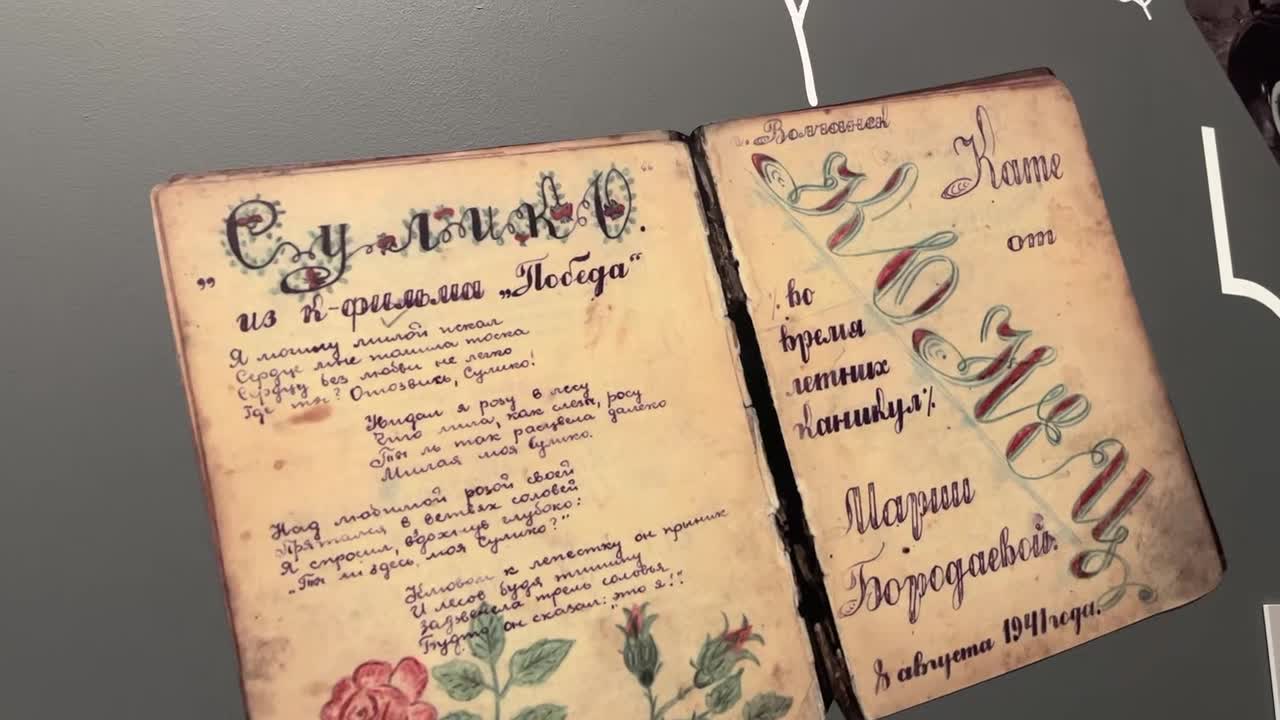 „Сулико“.
из к-фильма „Победа“
Я могилу милой искал
Сердце мне томила тоска
Сердцу без любви не легко
Где ты? Отозвись, Сулико!
Увидал я розу в лесу
Что лила, как слезы, росу
Ты ль так расцвела далеко
Милая моя Сулико.
Над любимой розой своей
Прятался в ветвях соловей
Я спросил, вздохнув глубоко:
„Ты ли здесь, моя Сулико?"
Клювом к лепестку он приник
И лесов будя тишину
Зазвенела трель соловья
Будто он сказал: „это я!"
г. Волчанск
Кате
от
% во
время
летних
каникул %
Марии
Бородаевой.
8 августа 1941 года.